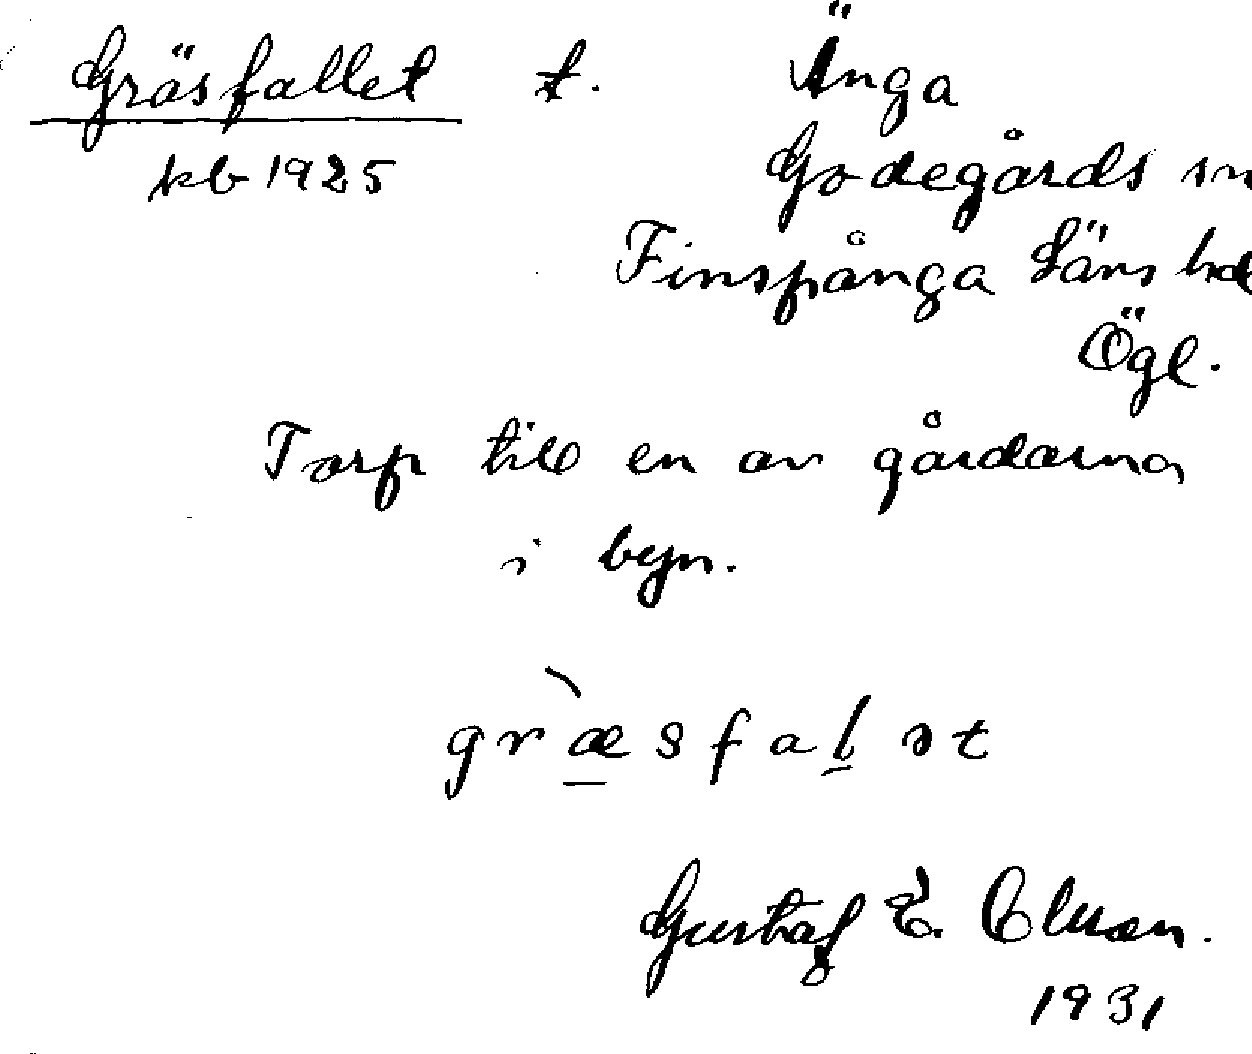 Gräsfallet t. Änga
kb 1925 Godegårds sn
Finspånga Läns hd
Ögl.
Torp till en av gårdarna
i byn.
græ̲̀sfal̲ət
Gustaf E. Olsson.
1931